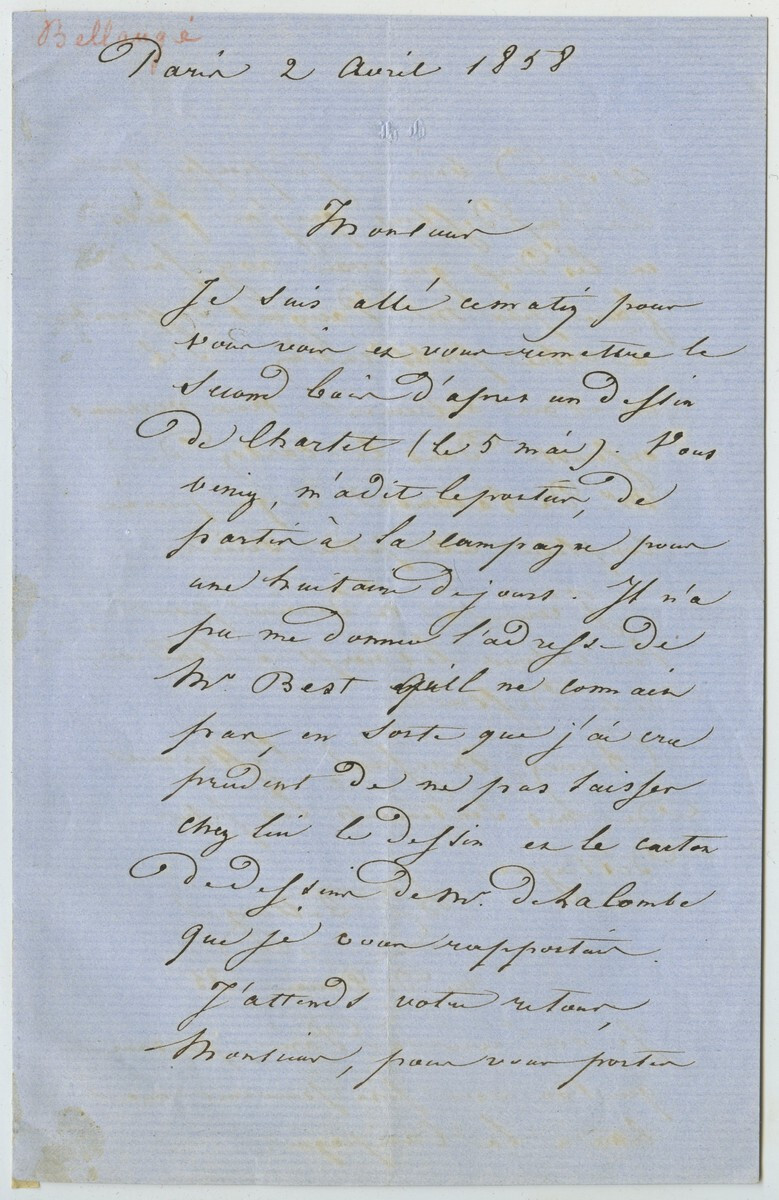 Bellangé
Paris 2 Avril 1858
Monsieur
Je suis allé ce matin pour
vous voir et vous remettre le
second bois d'après un dessin
de Charlet (le 5 mai). Vous
veniez, m'a dit le portier, de
partir à la campagne pour
une huitaine de jours. Il n'a
pu me donner l'adresse de
Mr. Best qu'il ne connait
pas, en sorte que j'ai cru
prudent de ne pas laisser
chez lui le dessin et le carton
de dessins de Mr. de Lalombe
que je vous rapportais.
J'attends votre retour,
Monsieur, pour vous porter